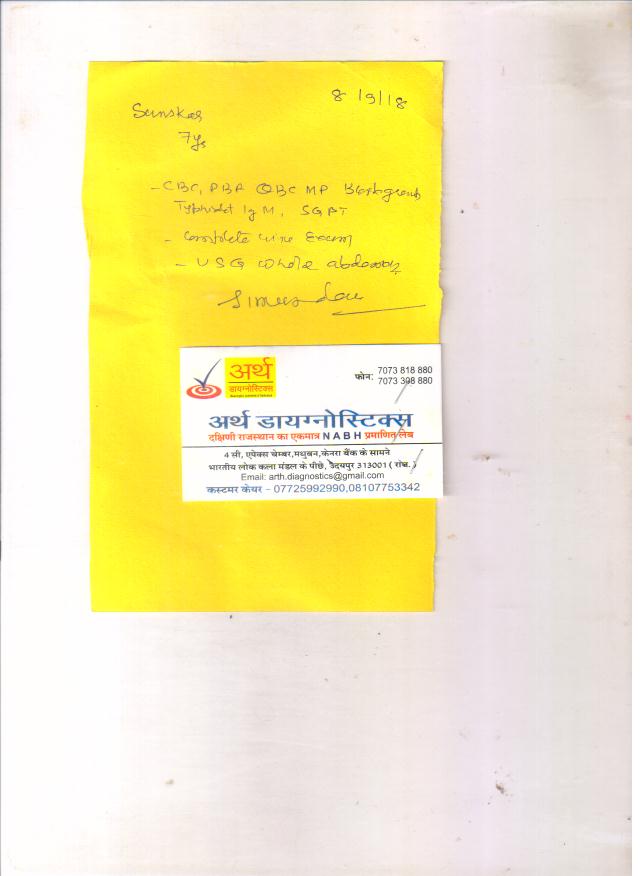 8/9/18
Sunskar
7ys
- CBC, PBF QBC MP
Typhidot IgM, SGPT
- Complete urine Exam
- USG whole abdomen
अर्थ
डायग्नोस्टिक्स
फोन: 7073 818 880
7073 308 880
अर्थ डायग्नोस्टिक्स
दक्षिणी राजस्थान का एकमात्र NABH प्रमाणित लेब
4 सी, एपेक्स चेम्बर,मधुबन,केनरा बैंक के सामने
भारतीय लोक कला मंडल के पीछे, उदयपुर 313001 ( राज. )
Email: arth.diagnostics@gmail.com
कस्टमर केयर - 07725992990,08107753342